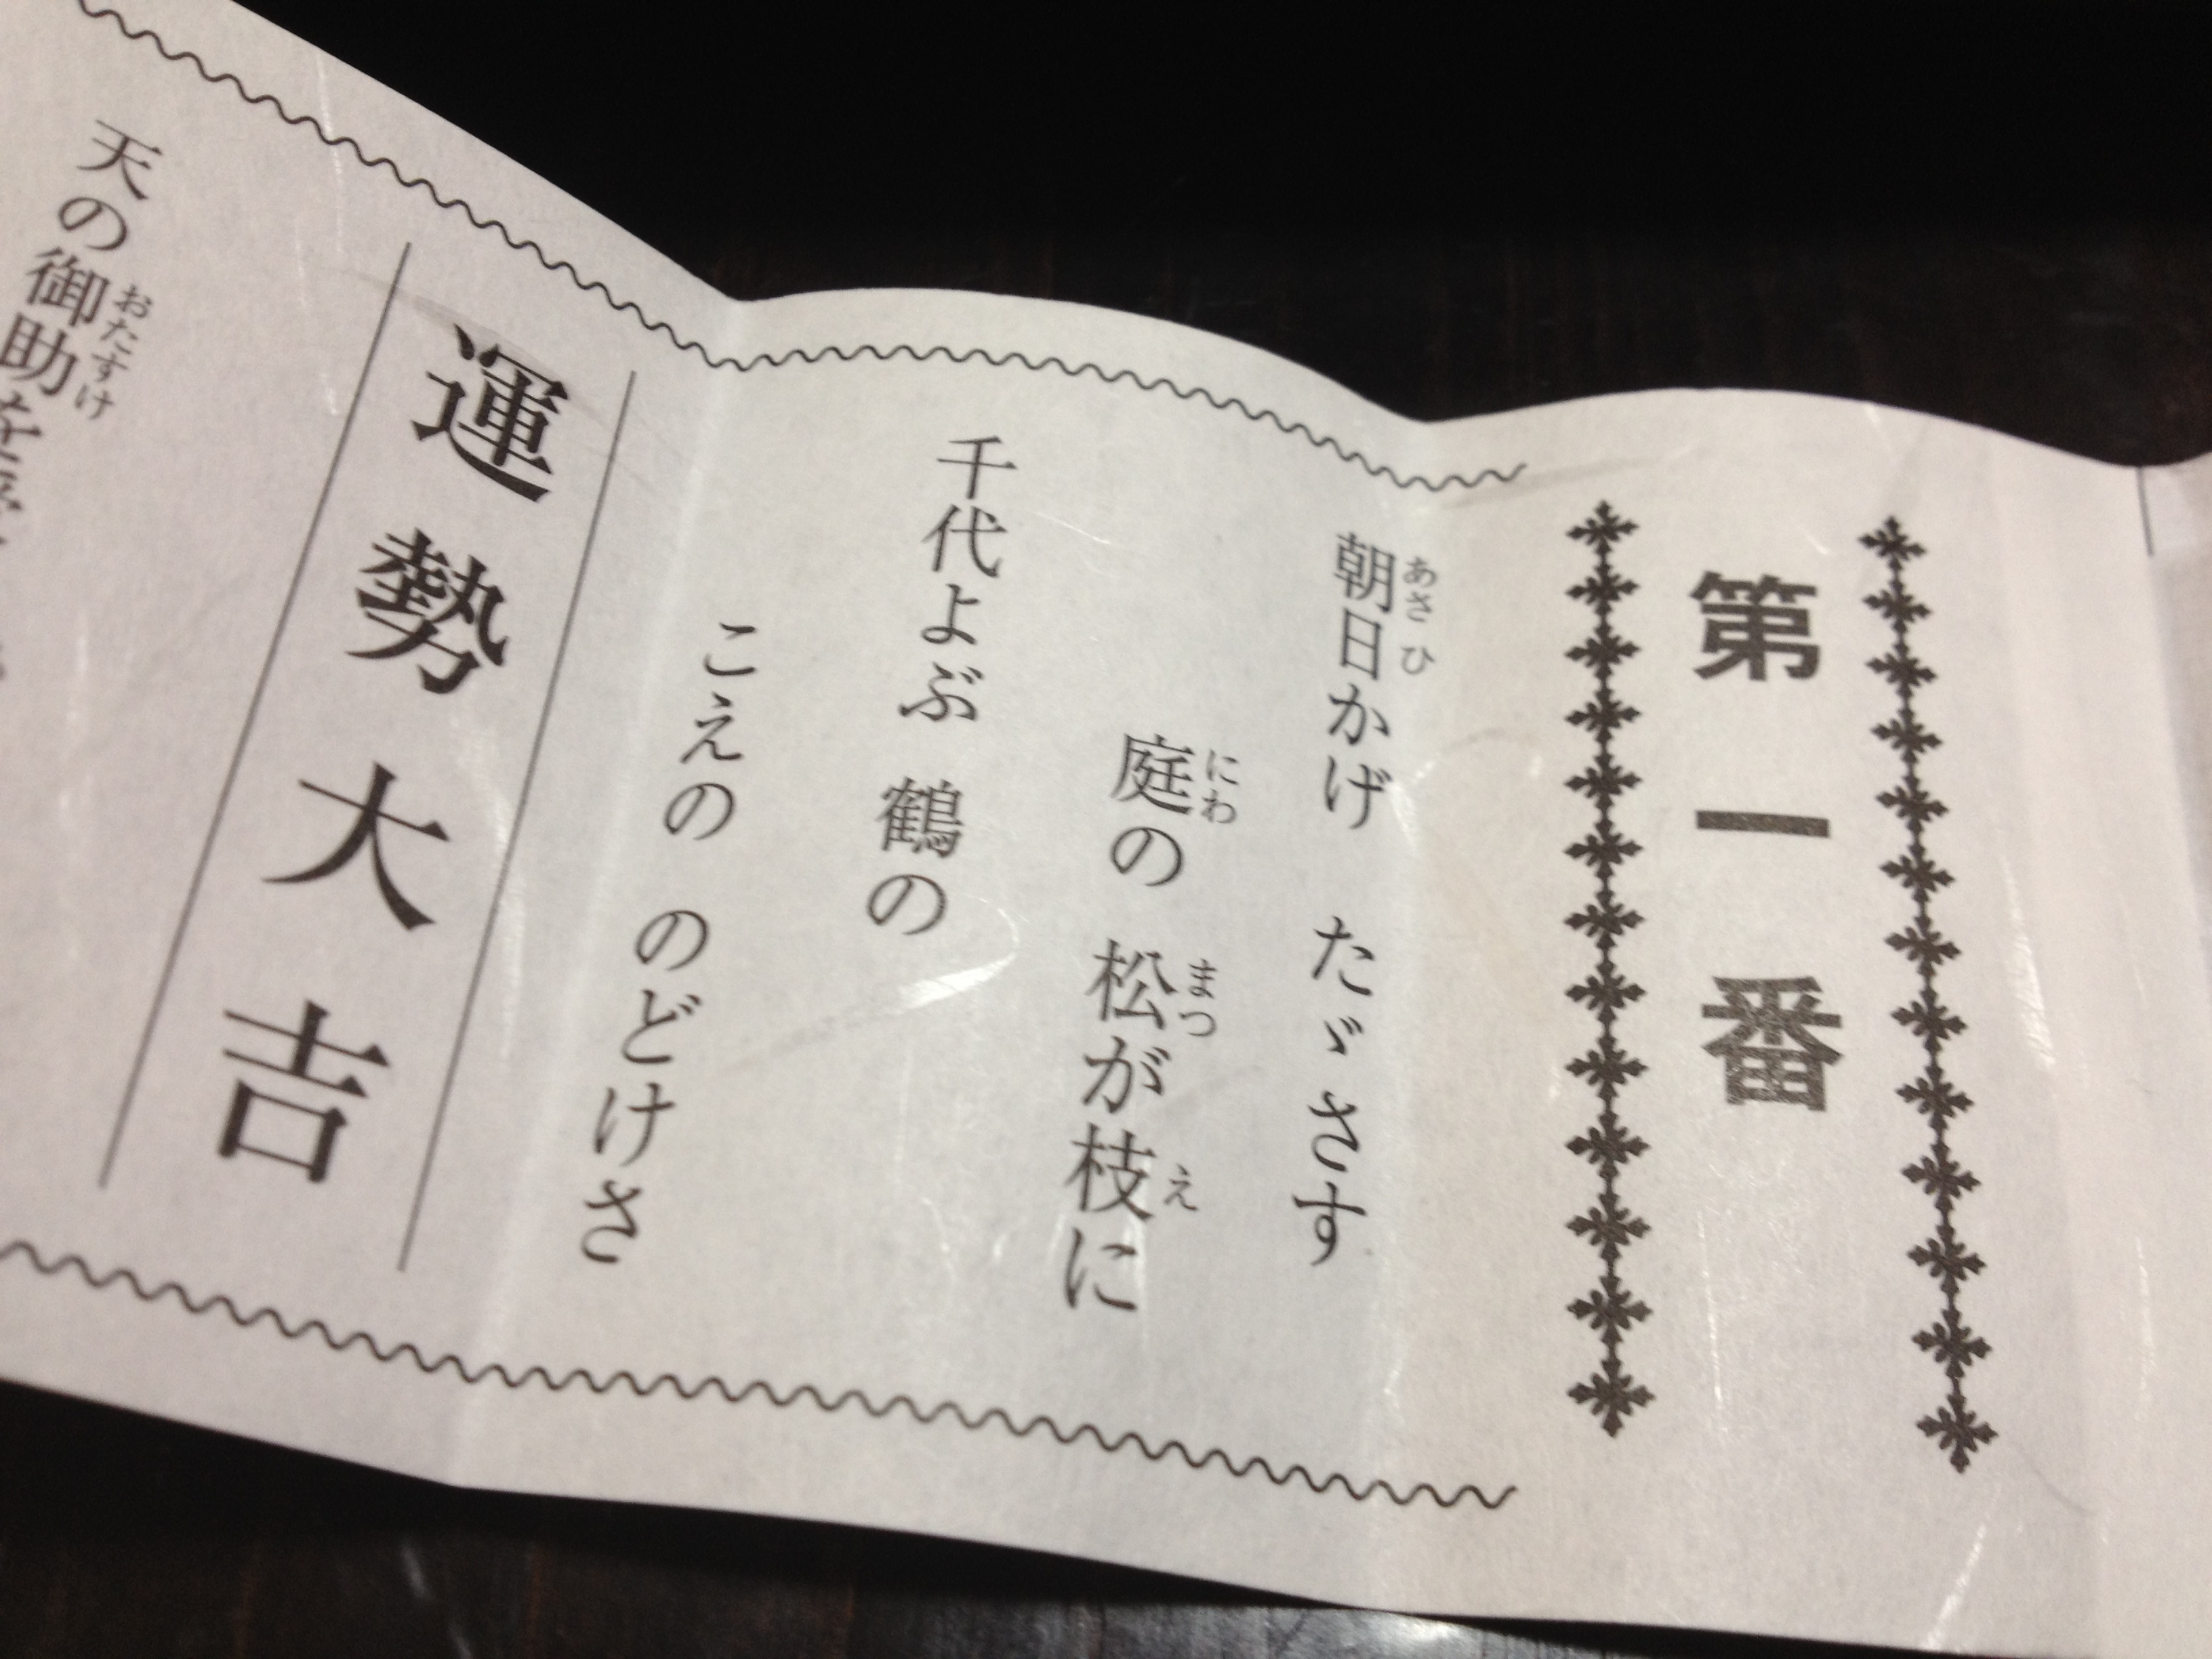 第一番
朝日かげ たゞさす
庭の 松が枝に
千代よぶ 鶴の
こえの のどけさ
運勢大吉
天の御助を
あさひ
にわ まつ え
おたすけ